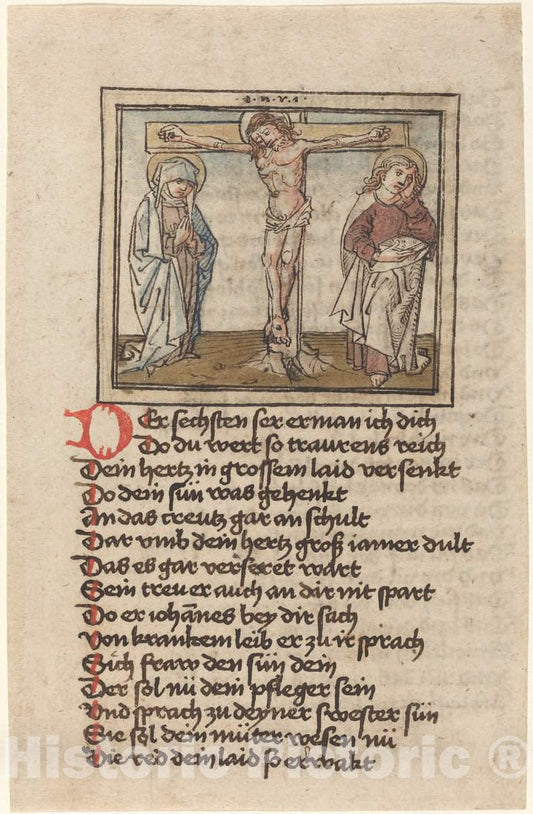 i·n·r·i·
Der sechsten ser erman ich dich
Do du wert so traurens reich
Dein hertz in grossem laid versenkt
Do dein sün was gehenkt
An das creutz gar an schult
Dar vmb dein hertz groß iamer dult
Das es gar verseret wart
Sein treu er auch an dir nit spart
Do er iohānes bey dir sach
Von krankem leib er zu ir sprach
Sich fraw den sün dein
Der sol nü dein pfleger sein
Vnd sprach zu deyner swester sün
Sie sol dein müter wesen nü
Die red dein laid so erwakt
Historic Pictoric ®